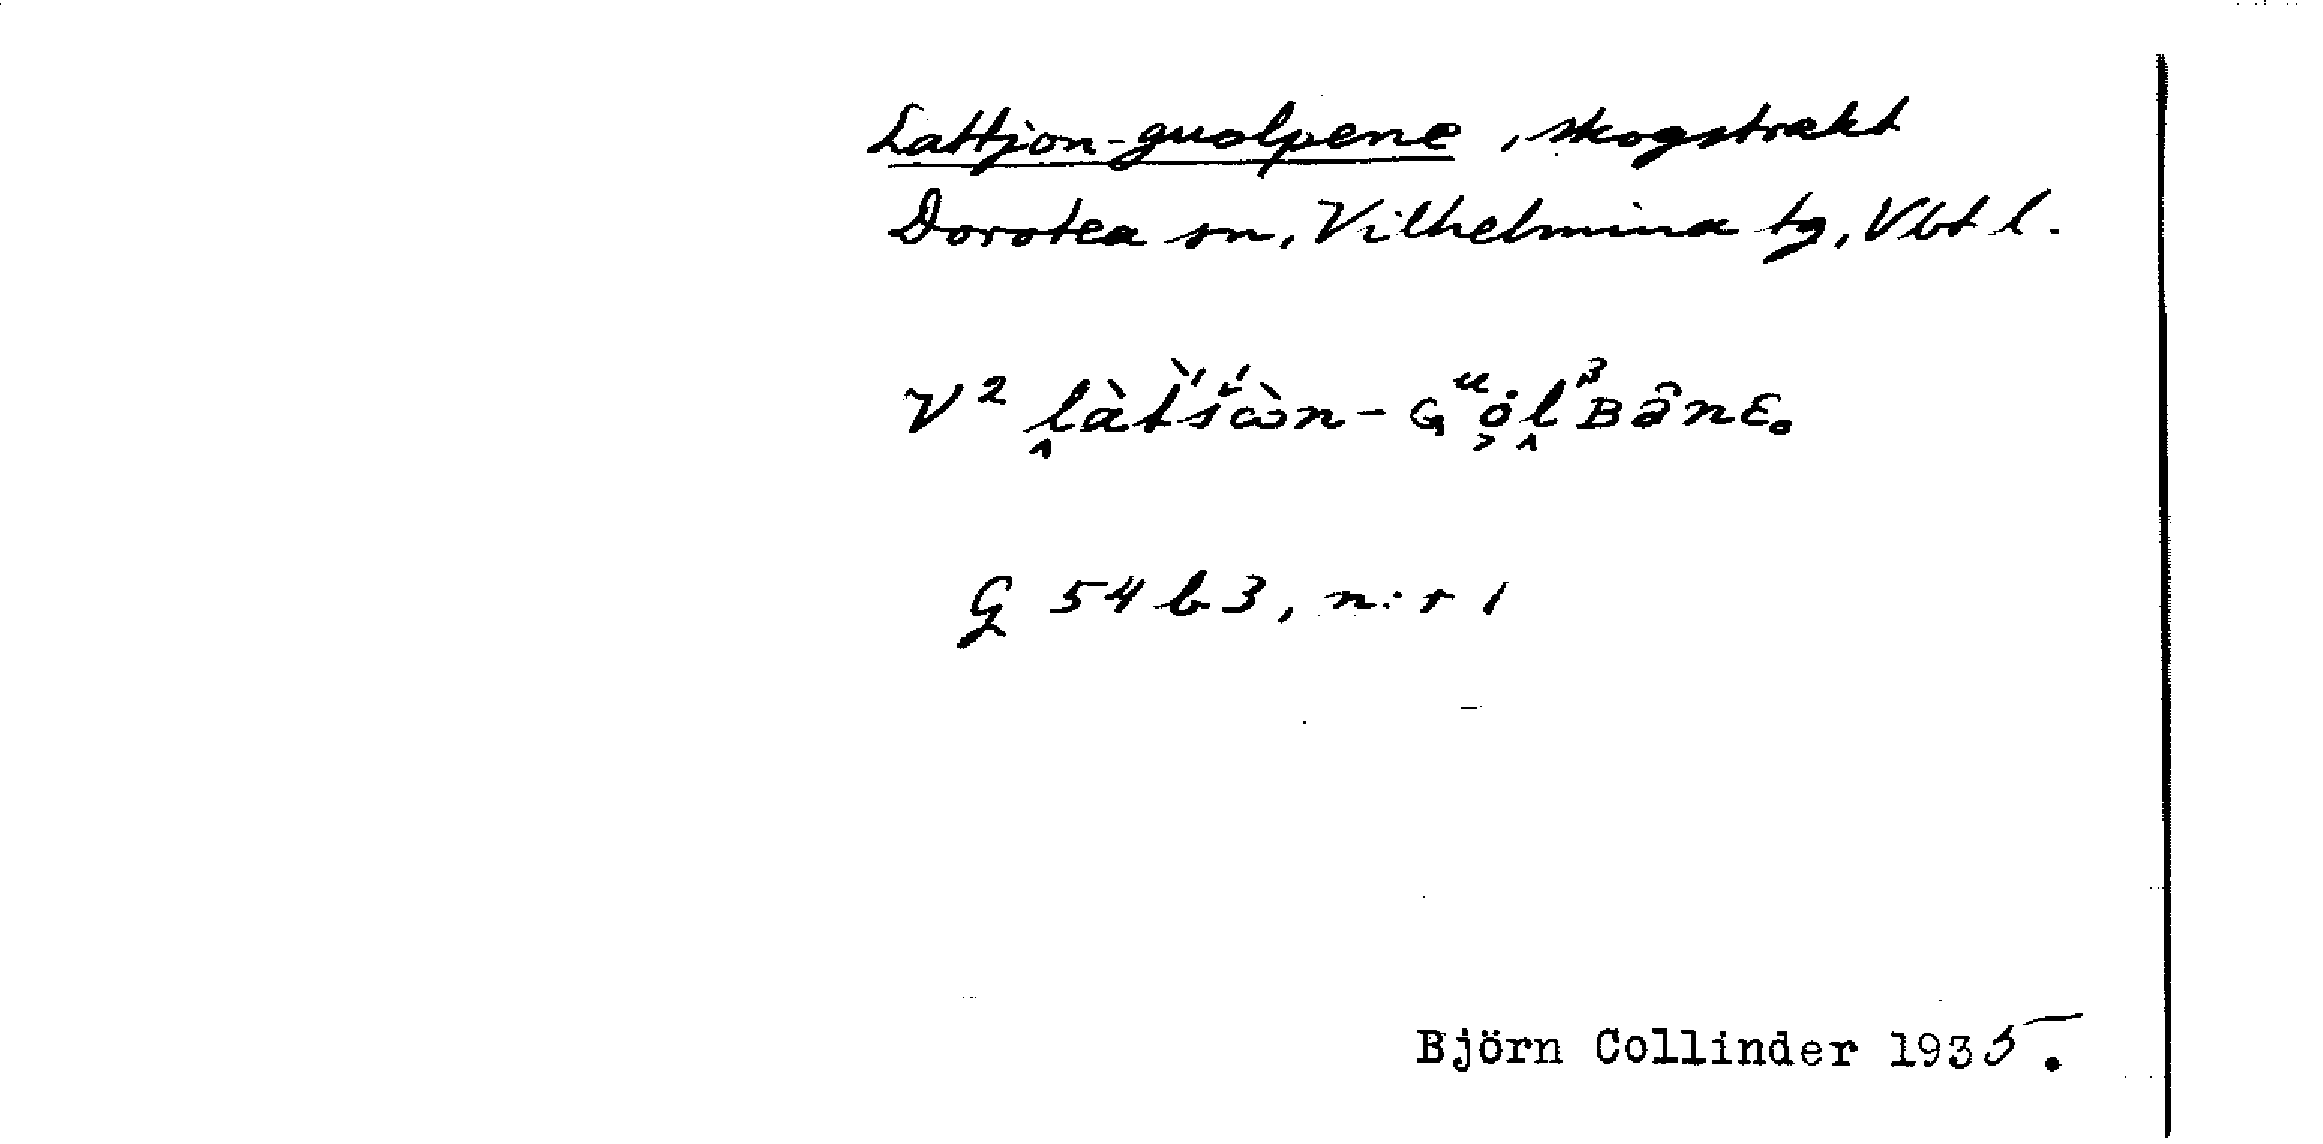 Lattjon-guolpene, skogstrakt
Dorotea sn, Vilhelmina tg, Vbt l.
V² ḽàt̀'ś̌ὼn-ɢᵘo̭ḽᴮʙânɛ。
G 54 b 3, n:r 1
Björn Collinder 1935.